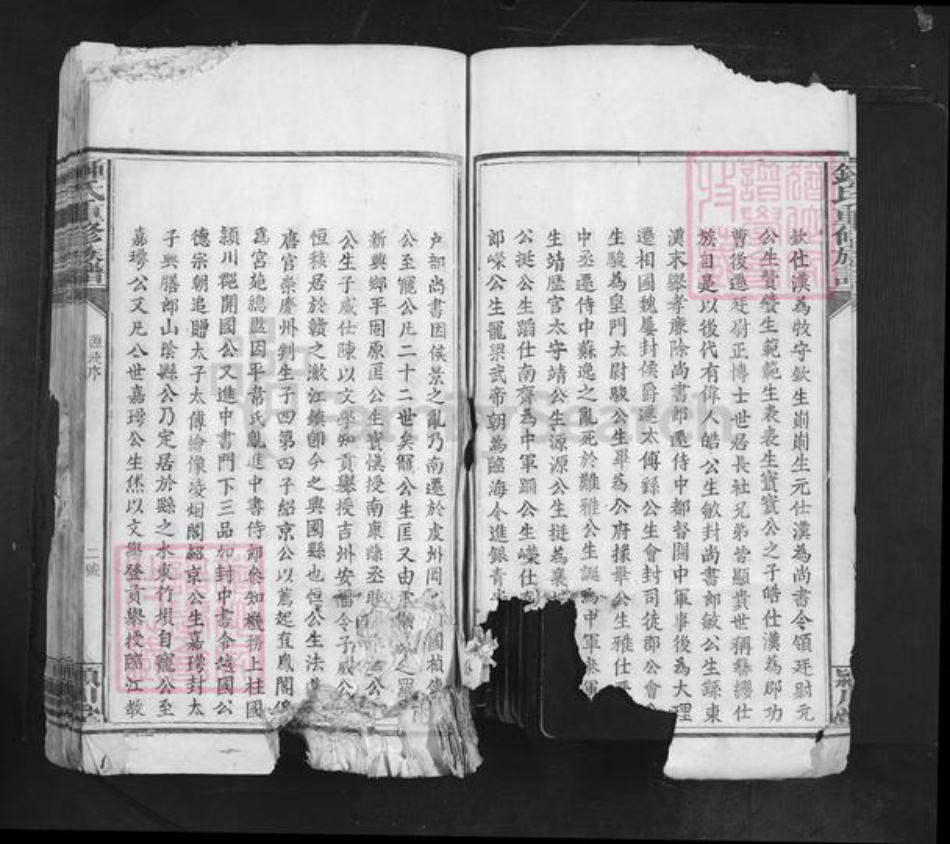 鍾氏重修族譜
欽仕漢為牧守欽生崱崱生元仕漢為尚書令領廷尉元
公生贊贊生範範生表表生寶寶公之子皓仕漢為郡功
曹後遷廷尉正博士世居長社兄弟皆顯貴世稱簪纓仕
族自是以後代有偉人皓公生敏封尚書郎敏公生繇東
漢末舉孝廉除尚書郎遷侍中都督關中軍事後為大理
遷相國魏屢封侯爵遷太傅繇公生會封司徒郡公會
生駿為皇門太尉駿公生畢為公府掾畢公生雅仕晉
中丞遷侍中蘇逸之亂死於難雅公生誕為中軍參軍
生靖歷官太守靖公生源源公生挺為襄
公挺公生蹈仕南齊為中軍蹈公生嶸仕
郎嶸公生寵梁武帝朝為臨海令進銀青
户部尚書因侯景之亂乃南遷於虔州
公至寵公凡二十二世矣寵公生匡又由
新興鄉平固原匡公生寶慎授南康縣丞
公生子威仕陳以文學知貢舉授吉州安福令子威公
恒穢居於贛之瀲江鎮即今之興國縣也恒公生法
唐官崇慶州刺生子四第四子紹京公以薦起直鳳閣
爲宮苑總監因平韋氏亂進中書侍郎參知機務上柱國
潁川郡開國公又進中書門下三品加封中書令越國公
德宗朝追贈太子太傅繪像凌烟閣紹京公生嘉璹封太
子興膳郎山陰縣公乃定居於縣之水東竹壩自寵公至
嘉璹公又凡八世嘉璹公生烋以文學登貢舉授臨江教
鍾氏重修族譜
源流序
二號
潁川堂